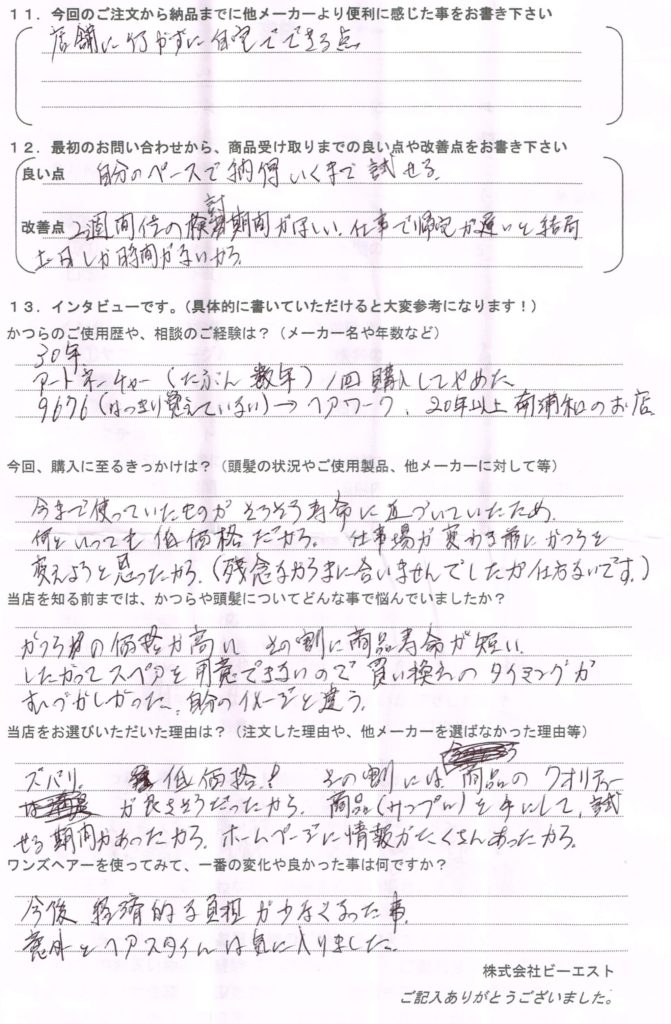 １１．今回のご注文から納品までに他メーカーより便利に感じた事をお書き下さい
店舗に行かずに自宅でできる点
１２．最初のお問い合わせから、商品受け取りまでの良い点や改善点をお書き下さい
良い点　自分のペースで納得いくまで試せる。
改善点　2週間位の検討期間がほしい。仕事で帰宅が遅いと結局
土日しか時間がないから。
１３．インタビューです。（具体的に書いていただけると大変参考になります！）
かつらのご使用歴や、相談のご経験は？（メーカー名や年数など）
30年
アートネーチャー（たぶん 数年）1回購入してやめた
9676（はっきり覚えていない）→ヘアワーク、20年以上 南浦和のお店
今回、購入に至るきっかけは？（頭髪の状況やご使用製品、他メーカーに対して等）
今まで使っていたものがそろそろ寿命に近づいていたため。
何といっても低価格だから。　仕事場が変わる前にかつらを
変えようと思ったから。（残念ながらまに合いませんでしたが仕方ないです。）
当店を知る前までは、かつらや頭髪についてどんな事で悩んでいましたか？
かつらの価格が高い その割に商品寿命が短い。
したがってスペアを用意できないので買い換えのタイミングが
むづかしかった。自分のイメージと違う。
当店をお選びいただいた理由は？（注文した理由や、他メーカーを選ばなかった理由等）
ズバリ。　低価格！　その割には商品のクオリティー
が良さそうだったから。商品（サンプル）を手にして、試
せる期間があったから。ホームページに情報がたくさんあったから。
ワンズヘアーを使ってみて、一番の変化や良かった事は何ですか？
今後 経済的な負担が少なくなった事。
意外とヘアスタイルは気に入りました。
株式会社ビーエスト
ご記入ありがとうございました。